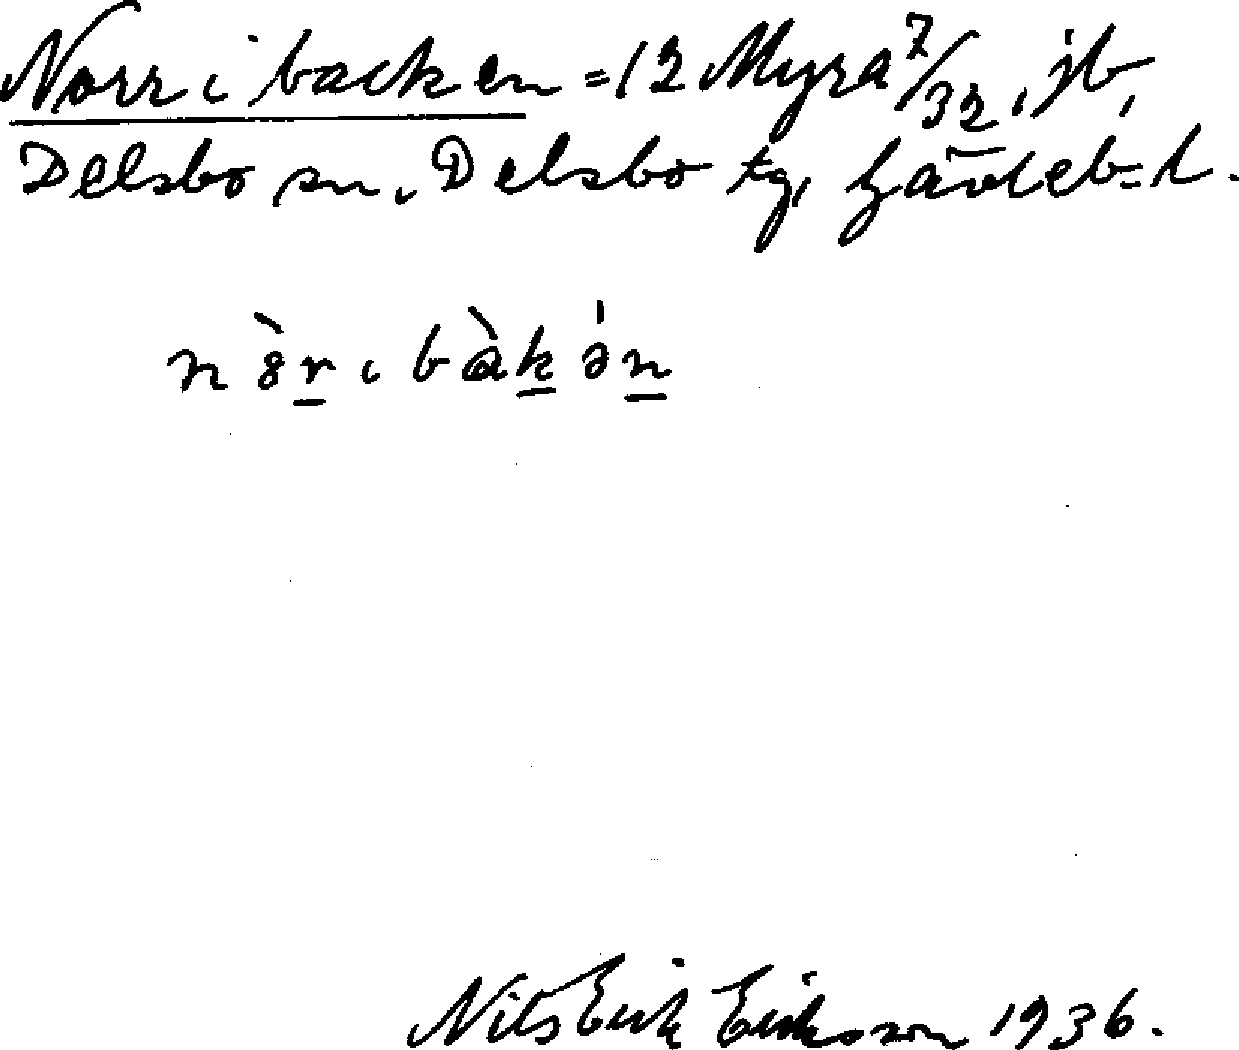 Norr i backen = 12 Myra 7/32, jb,
Delsbo sn, Delsbo tg, Gävleb. l.
nòr i bàkən
Nils Erik Eriksson 1936.